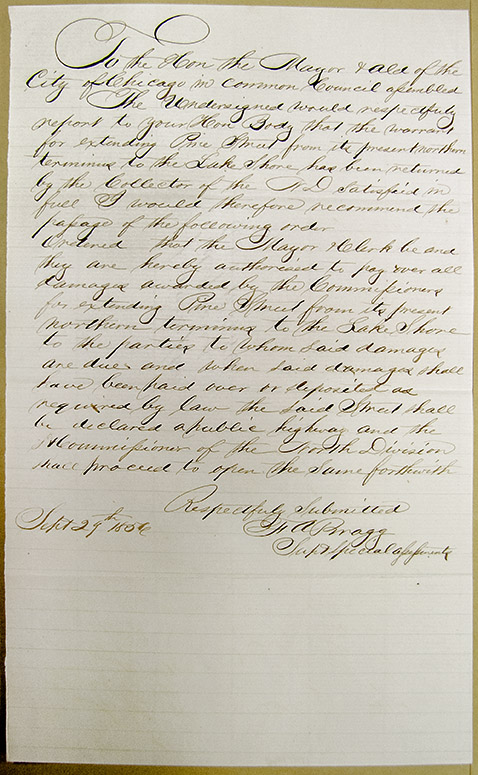 To the Hon the Mayor & Ald of the
City of Chicago in common Council assembled
The Undersigned would respectfully
report to your Hon Body that the warrant
for extending Pine Street from its present northern
terminus to the Lake Shore has been returned
by the Collector of the N D Satisfied in
full I would therefore recommend the
passage of the following order
Ordered that the Mayor & Clerk be and
they are hereby authorised to pay over all
damages awarded by the Commissioners
for extending Pine Street from its present
northern terminus to the Lake Shore
to the parties to whom said damages
are due and when said damages shall
have been paid over or deposited as
required by law the said Street shall
be declared a public highway and the
Commissioner of the North Division
shall proceed to open the same forthwith
Respectfully Submitted
Sept 29th
Bragg
Supt Special Assessments